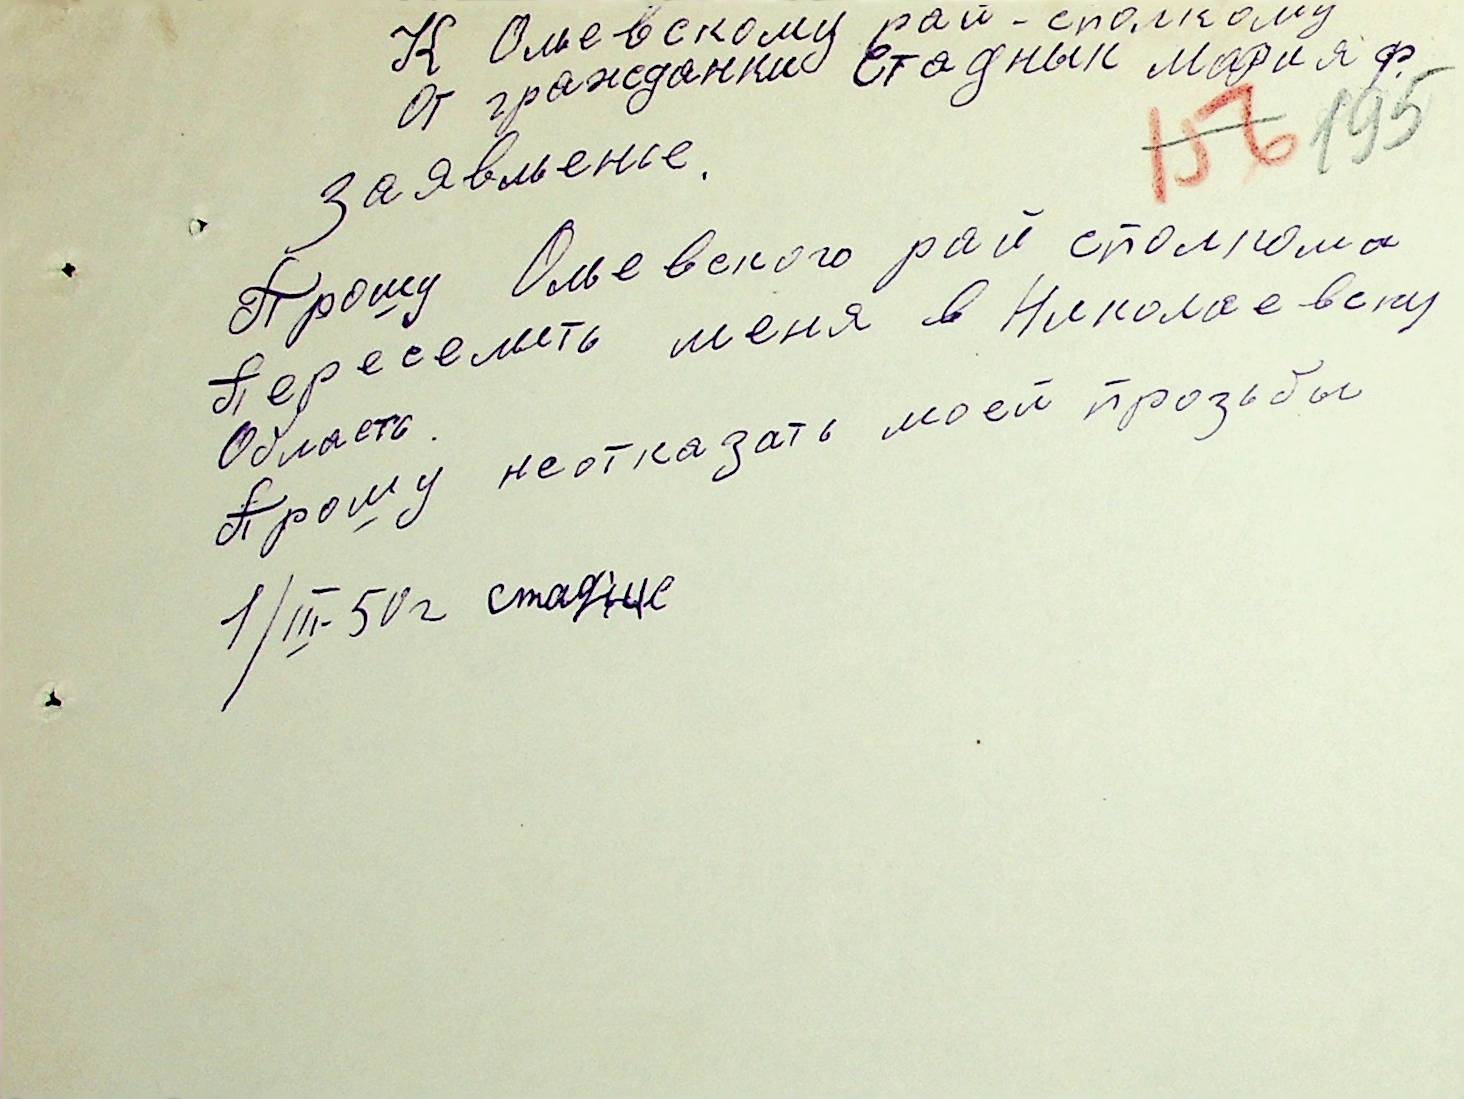 К Ольевскому рай-сполкому
От гражданки Стаднык Мария Ф.
156 195
Заявленье.
Прошу Ольевского рай сполкома
Переселить меня в Николаевску
Область.
Прошу неотказать моей прозьбы
1/III-50г